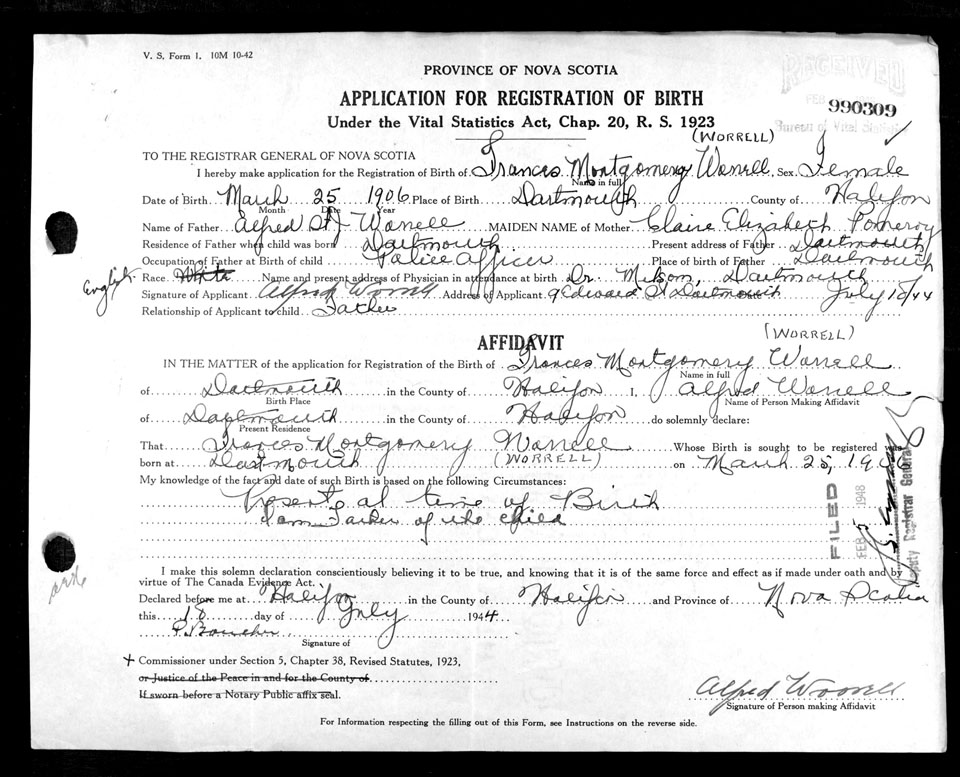 V. S. Form 1. 10M 10-42
PROVINCE OF NOVA SCOTIA
RECEIVED
FEB
990309
Bureau of Vital Statistics
APPLICATION FOR REGISTRATION OF BIRTH
Under the Vital Statistics Act, Chap. 20, R. S. 1923
(WORRELL)
TO THE REGISTRAR GENERAL OF NOVA SCOTIA
I hereby make application for the Registration of Birth of Frances Montgomery Worrell, Sex Female
Name in full
Date of Birth March 25 1906 Place of Birth Dartmouth County of Halifax
Month Date Year
Name of Father Alfred Worrell MAIDEN NAME of Mother Claire Elizabeth Pomeroy
Residence of Father when child was born Dartmouth Present address of Father Dartmouth
Occupation of Father at Birth of child Police Officer Place of birth of Father Dartmouth
English
Race White Name and present address of Physician in attendance at birth Dr. Dartmouth
Signature of Applicant Alfred Worrell Address of Applicant 9 Edward St Dartmouth July 18/44
Relationship of Applicant to child Father
AFFIDAVIT
(WORRELL)
IN THE MATTER of the application for Registration of the Birth of Frances Montgomery Worrell
Name in full
of Dartmouth in the County of Halifax I, Alfred Worrell
Birth Place Name of Person Making Affidavit
of Dartmouth in the County of Halifax do solemnly declare:
Present Residence
That Frances Montgomery Worrell Whose Birth is sought to be registered was
born at Dartmouth (WORRELL) on March 25, 1906
My knowledge of the fact and date of such Birth is based on the following Circumstances:
Present at time of Birth
I am Father of the child
FILED
FEB 5 1948
Deputy Registrar General
I make this solemn declaration conscientiously believing it to be true, and knowing that it is of the same force and effect as if made under oath and by
virtue of The Canada Evidence Act.
Declared before me at Halifax in the County of Halifax and Province of Nova Scotia
this 18 day of July 1944
Signature of
+ Commissioner under Section 5, Chapter 38, Revised Statutes, 1923,
or Justice of the Peace in and for the County of
If sworn before a Notary Public affix seal.
Alfred Worrell
Signature of Person making Affidavit
For Information respecting the filling out of this Form, see Instructions on the reverse side.